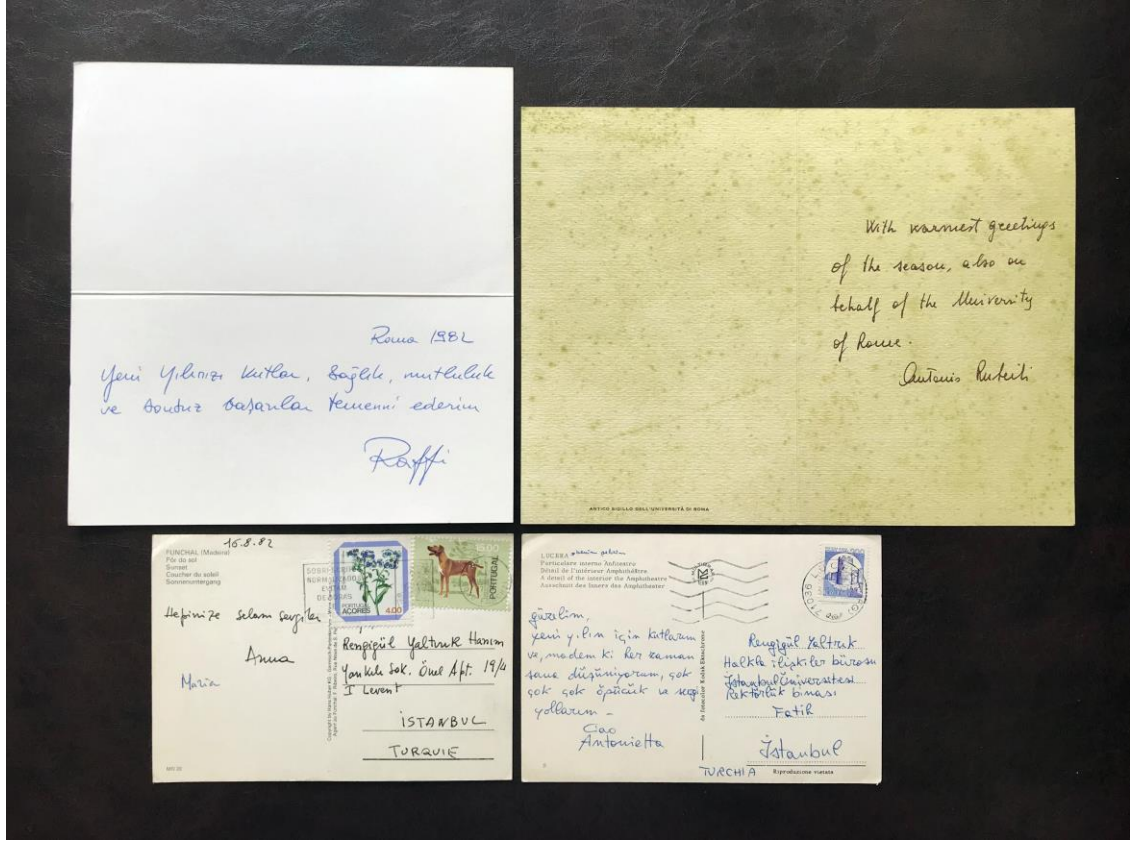 Roma 1982
Yeni Yılınızı kutlar, sağlık, mutluluk
ve sonsuz başarılar temenni ederim
Raffi
With warmest greetings
of the season, also on
behalf of the University
of Rome.
Antonio
ANTICO SIGILLO DELL'UNIVERSITÀ DI ROMA
16.8.82
FUNCHAL (Madeira)
Pôr do sol
Sunset
Coucher du soleil
Sonnenuntergang
Hepinize selam sevgiler
Anna
Maria
PORTUGAL
AÇORES 4.00
16.00
PORTUGAL
Rengigül Yaltruk Hanım
Yankılı Sok. Önel Apt. 19/4
I Levent
İSTANBUL
TURQUIE
LUCERA
Particolare interno Anfiteatro
Détail de l'intérieur Amphithéâtre
A detail of the interior the Amphoteatre
Ausschnit des Innern des Amphitheater
güzelim,
yeni yılın için kutlarım
ve, madem ki her zaman
sana düşünüyorum, çok
çok çok öpücük ve sevgi
yollarım -
Ciao
Antonietta
da fotocolor Kodak Ektachrome
71036 LUCERA
Rengigül Yaltruk
Halkla ilişkiler bürosu
İstanbul Üniversitesi
Rektörlük binası
Fatih
İstanbul
TURCHIA
Riproduzione vietata